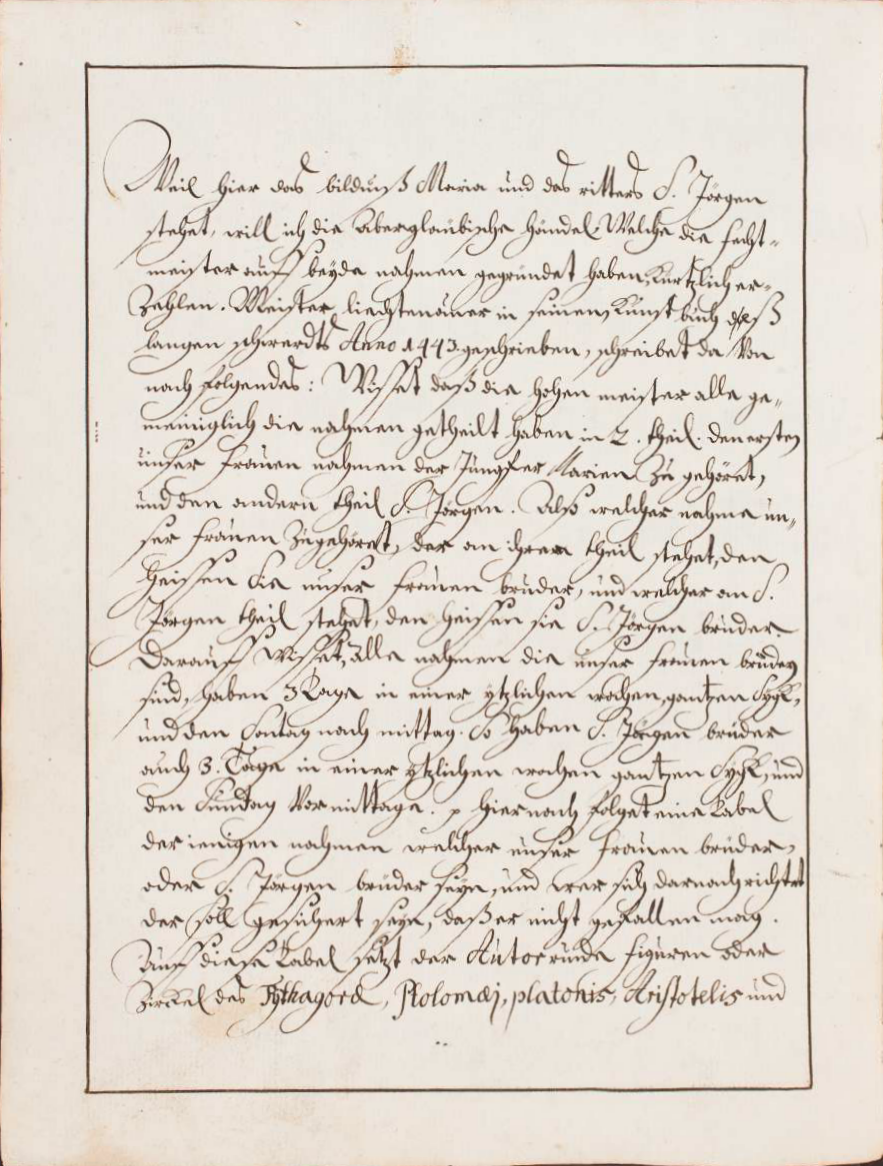 Weil hier das bildnuß Maria und das ritters S. Jörgen
stehet, will ich die Abergläubische händel, Welche die fecht-
meister auff beyde nahmen gegründet haben, Kürtzlich er-
Zehlen. Meister liechtenawer in seinem Kunst buch deß
langen schwerdts Anno 1443. geschrieben, schreibet da Von
nach folgendes: Wisset daß die hohen meister alle ge-
meiniglich die nahmen getheilt haben in 2. theil. den ersten
unser frauen nahmen der Jungfer Marien Zu gehöret,
und den andern theil S. Jörgen. Alß welcher nahme un-
ser frauen Zugehöret, der an ihrem theil stehet, den
heissen Sie unser frauen bruder, und welcher an S.
Jörgen theil stehet, den heissen sie S. Jörgen bruder.
Darauff Wisset, alle nahmen die unser frauen brüder
sind, haben 3 Tage in einer ytzlichen wochen, gantzen Sygk,
und den Sontag nach mittag. So haben S. Jörgen brüder
auch 3. Tage in einer ytzlichen wochen gantzen Sygk, und
den Suntag Vor mittage. hier nach folget eine Tabel
der ienigen nahmen welcher unser frauen brüder,
oder S. Jörgen brüder seyn, und wer sich darnach richtet
der soll gesichert seyn, daß er nicht gefallen mag.
Auff diese Tabel setzt der Autor runde figuren oder
Zirckel des Pythagoræ, Ptolomæj, platonis, Aristotelis und